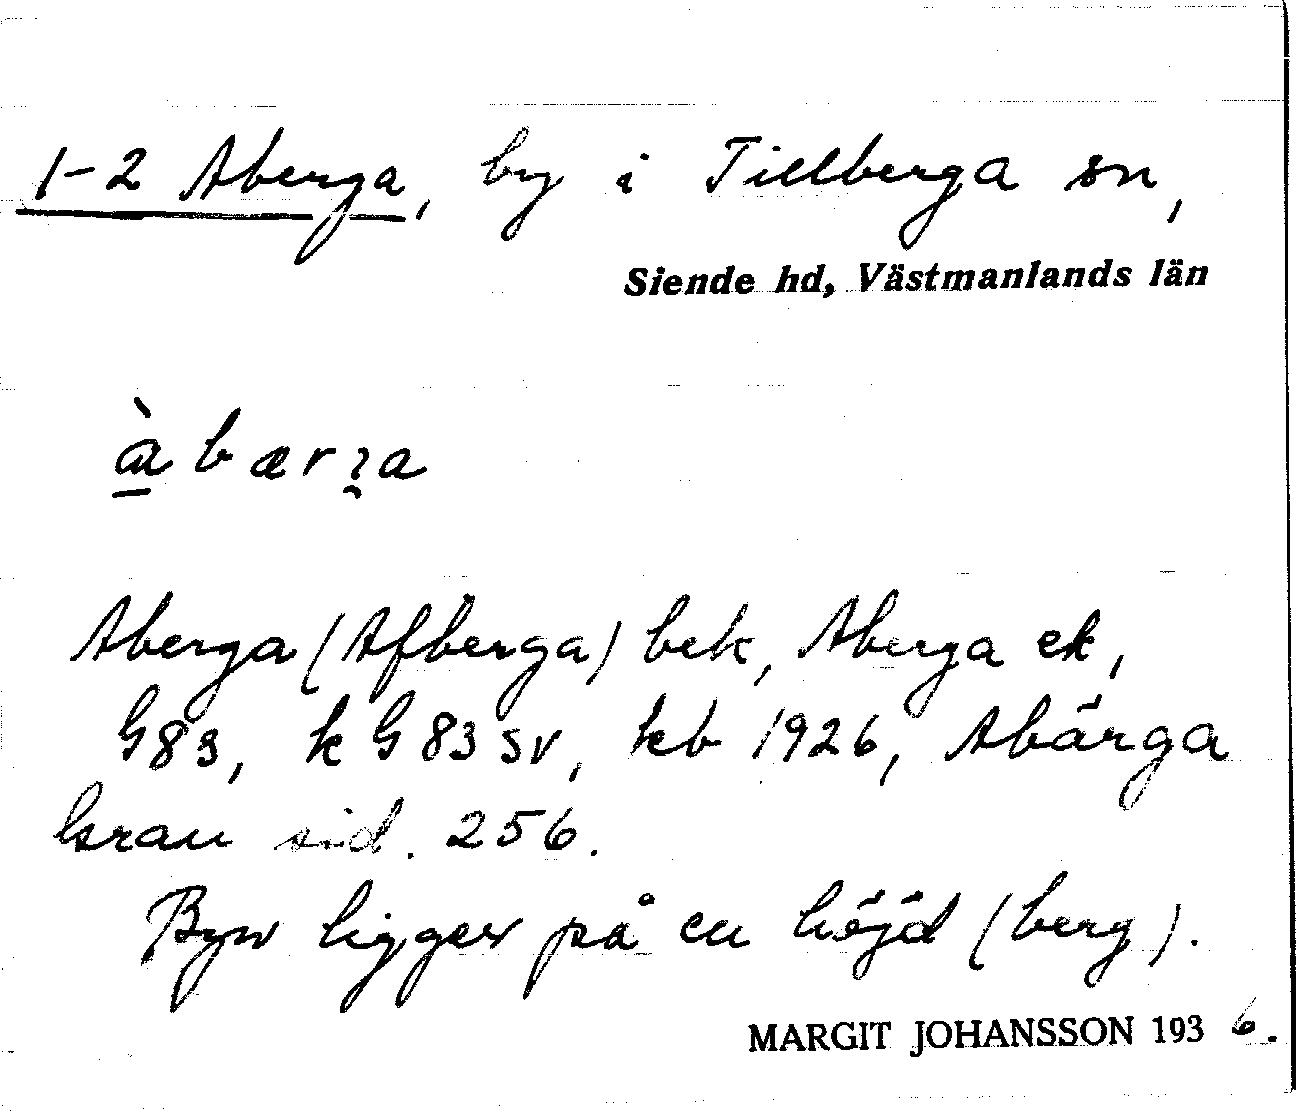 1-2 Aberga, by i Tillberga sn,
Siende hd, Västmanlands län
à̠ b æ r ɂ̯ a
Aberga (Afberga) bek, Aberga ek,
G83, k G 83 sv, kb 1926, Abärga
Grau sid. 256.
Byn ligger på en höjd (berg).
MARGIT JOHANSSON 1936.